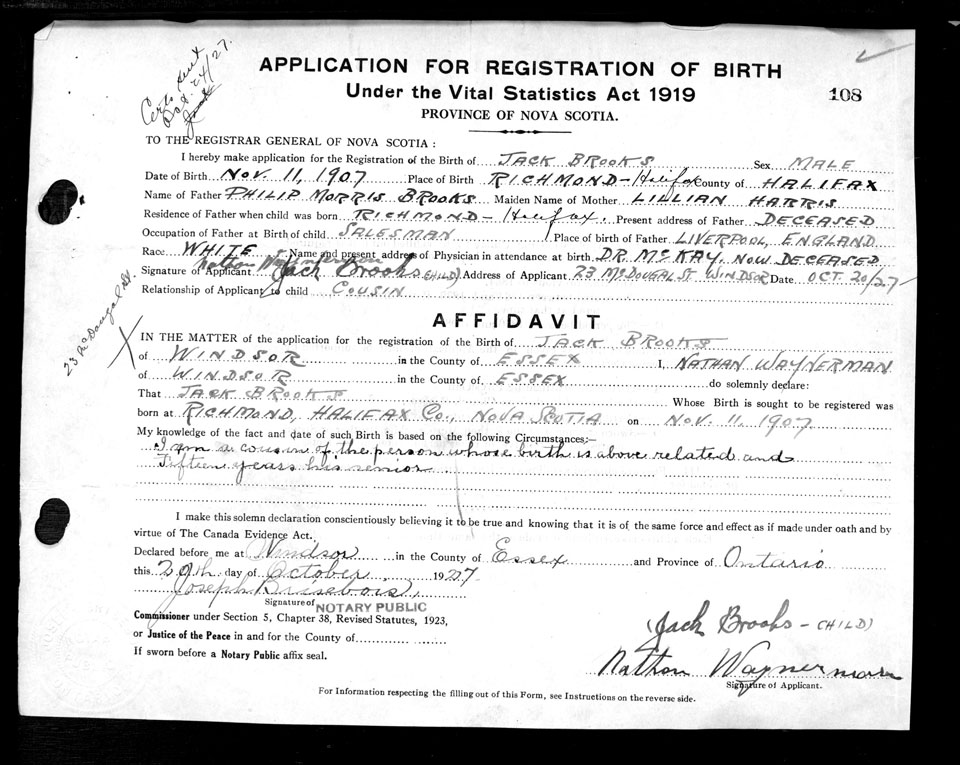 Cert sent
Oct. 24/27.
APPLICATION FOR REGISTRATION OF BIRTH
Under the Vital Statistics Act 1919
108
PROVINCE OF NOVA SCOTIA.
TO THE REGISTRAR GENERAL OF NOVA SCOTIA :
I hereby make application for the Registration of the Birth of JACK BROOKS Sex MALE
Date of Birth NOV. 11, 1907 Place of Birth RICHMOND - Halifax County of HALIFAX
Name of Father PHILIP MORRIS BROOKS Maiden Name of Mother LILLIAN HARRIS
Residence of Father when child was born RICHMOND - Halifax. Present address of Father DECEASED
Occupation of Father at Birth of child SALESMAN Place of birth of Father LIVERPOOL, ENGLAND
Race WHITE Name and present address of Physician in attendance at birth DR. McKAY, NOW DECEASED
Nathan Waynerman
Signature of Applicant (Jack Brooks CHILD) Address of Applicant 23 McDOUGAL ST. WINDSOR Date OCT. 20/27
Relationship of Applicant to child COUSIN
23 McDougal St.
AFFIDAVIT
IN THE MATTER of the application for the registration of the Birth of JACK BROOKS
of WINDSOR in the County of ESSEX I, NATHAN WAYNERMAN
of WINDSOR in the County of ESSEX do solemnly declare:
That JACK BROOKS Whose Birth is sought to be registered was
born at RICHMOND, HALIFAX CO., NOVA SCOTIA on NOV. 11, 1907
My knowledge of the fact and date of such Birth is based on the following Circumstances;—
I am a cousin of the person whose birth is above related and
fifteen years his senior
I make this solemn declaration conscientiously believing it to be true and knowing that it is of the same force and effect as if made under oath and by
virtue of The Canada Evidence Act.
Declared before me at Windsor in the County of Essex and Province of Ontario
this 20th day of October 1927
Joseph Brisebois,
Signature of NOTARY PUBLIC
Commissioner under Section 5, Chapter 38, Revised Statutes, 1923,
or Justice of the Peace in and for the County of
If sworn before a Notary Public affix seal.
(Jack Brooks - CHILD)
Nathan Waynerman
Signature of Applicant.
For Information respecting the filling out of this Form, see Instructions on the reverse side.